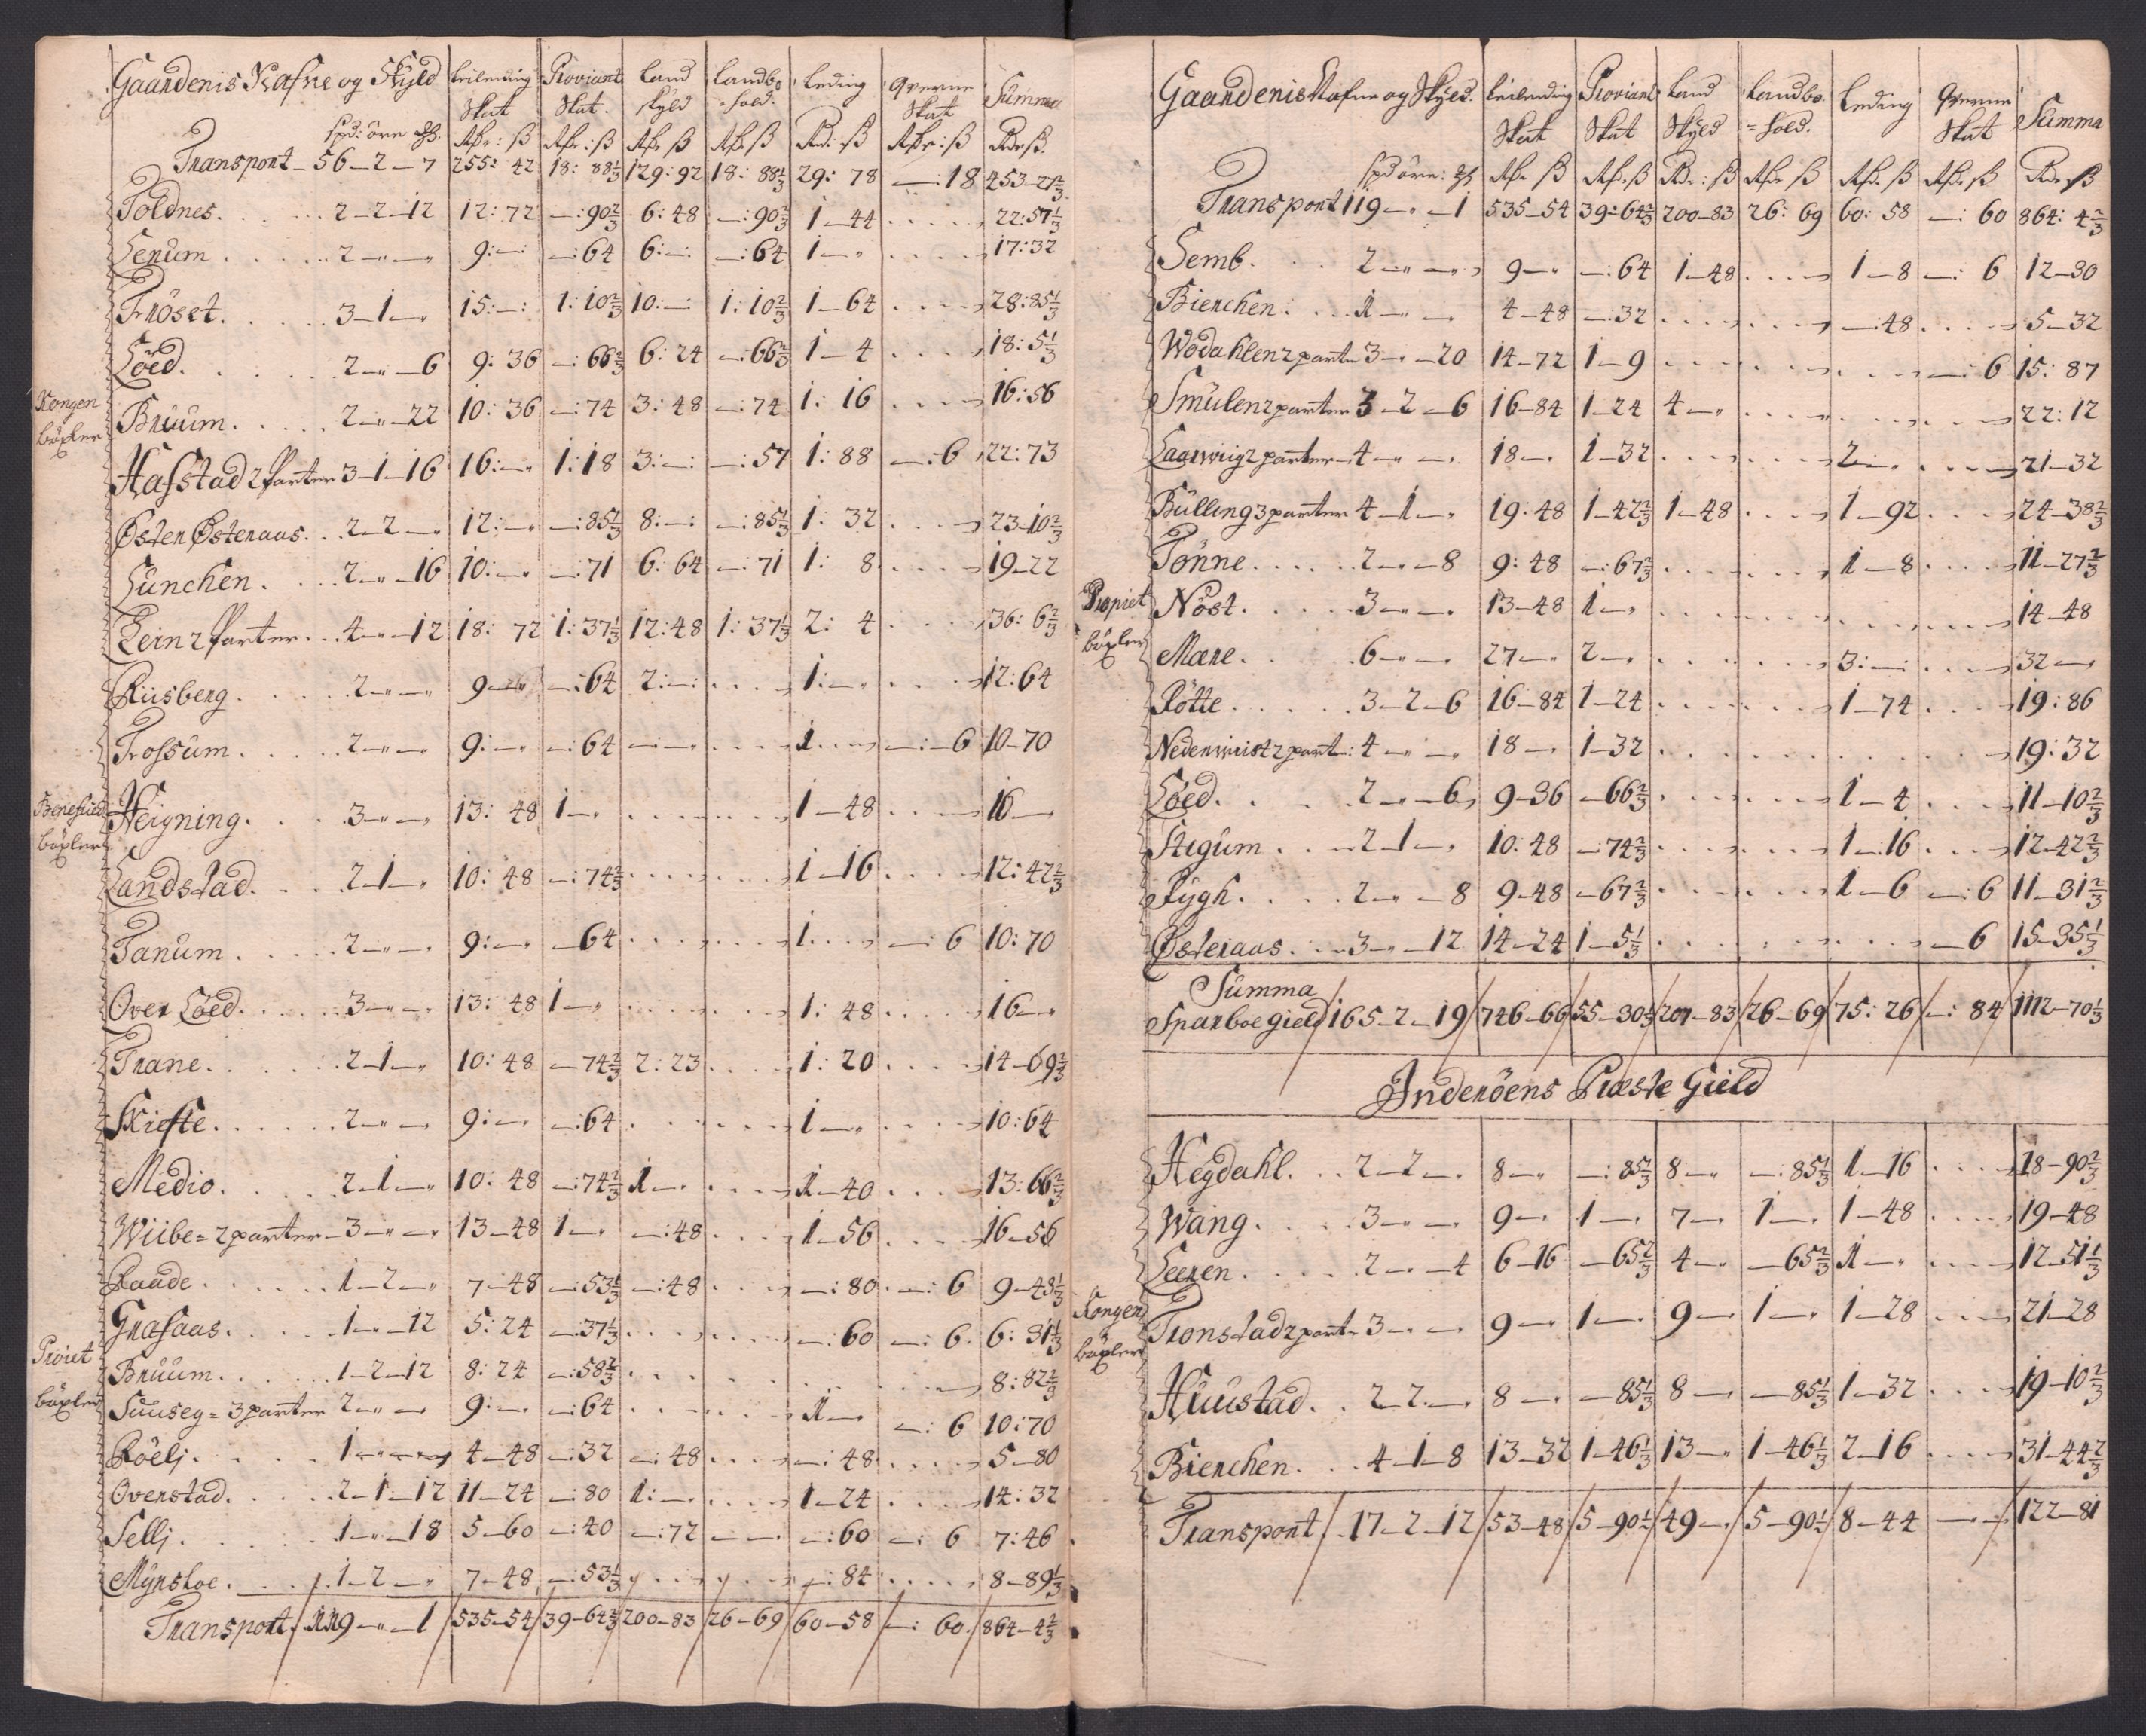 Gaardenis Nafne og Skyld | Leilending Skat | Proviant Skat. | Land skyld | Landbo hold. | Leding | Qverne Skat | Summa
spd: öre | Rdr: ß | Rdr: ß | Rdr ß | Rdr ß | Rd: ß | Rdr: ß | Rdr ß.
Transport – 56–2–7 | 255: 42 | 18: 88⅓ | 129: 92 | 18: 88⅓ | 29: 78 | —: 18 | 453–27⅔
Toldnes. 2–2–12 | 12: 72 | —: 90⅔ | 6: 48 | —: 90⅔ | 1–44 | . . . . | 22: 57⅓
Serum . . . 2–„–„ | 9: — | —: 64 | 6: — | —: 64 | 1–„ | . . . . | 17: 32
Fröset. 3–1–„ | 15: —: | 1: 10⅔ | 10: — | 1: 10⅔ | 1–64 | . . . . | 28: 85⅓
Löed. 2–„–6 | 9: 36 | —: 66⅔ | 6: 24 | —: 66⅔ | 1–4 | . . . . | 18: 5⅓
Kongen böxler
Bruum. 2–„–22 | 10: 36 | —: 74 | 3: 48 | —: 74 | 1: 16 | . . . . | 16: 56
Hafstad 2 Parter 3–1–16 | 16: —„ | 1: 18 | 3: —: | —: 57 | 1: 88 | —: 6 | 22: 73
Östen Östenaas. 2–2–„ | 12: —„ | —: 85⅓ | 8: —: | —: 85⅓ | 1: 32 | . . . . | 23–10⅔
Sunchen. 2–„–16 | 10: —„ | —: 71 | 6: 64 | —: 71 | 1: 8 | . . . . | 19–22
Lein 2 Parter. 4–„–12 | 18: 72 | 1: 37⅓ | 12: 48 | 1: 37⅓ | 2: 4 | . . . . | 36: 6⅔
Riisberg. 2–„–„ | 9 | —: 64 | 2: —: | . . . . | 1: —„ | . . . . | 12: 64
Trossum. 2–„–„ | 9: —„ | —: 64 | —: —„ | . . . . | 1 | —: 6 | 10–70
Beneficied böxler
Heigning. 3–„–„ | 13: 48 | 1–„ | . . . . | . . . . | 1–48 | . . . . | 16—
Landstad. 2–1–„ | 10: 48 | —: 74⅔ | . . . . | . . . . | 1–16 | . . . . | 12: 42⅔
Tanum. 2–„–„ | 9: —„ | —64 | . . . . | . . . . | 1 | —: 6 | 10: 70
Over Löed. 3–„–„ | 13: 48 | 1–„ | . . . . | . . . . | 1: 48 | . . . . | 16—„
Trane. 2–1–„ | 10: 48 | —74⅔ | 2: 23 | . . . . | 1: 20 | . . . . | 14–69⅔
Skiefte. 2–„–„ | 9: —„ | —: 64 | . . . . | . . . . | 1–„ | . . . . | 10: 64
Medio. 2–1–„ | 10: 48 | —: 74⅔ | 1–„ | . . . . | 1–40 | . . . . | 13: 66⅔
Wiibe = 2 parter – 3–„–„ | 13–48 | 1–„ | —: 48 | . . . . | 1–56 | . . . . | 16–56
Raade. 1–2–„ | 7–48 | —: 53⅓ | —: 48 | . . . . | —: 80 | —: 6 | 9–43⅓
Grafaas. 1–„–12 | 5: 24 | —: 37⅓ | . . . . | . . . . | —: 60 | —: 6. | 6: 31⅓
Proiet böxler
Bruum. 1–2–12 | 8: 24 | —: 58⅔ | . . . . | . . . . | . . . . | . . . . | 8: 82⅔
Suuseg = 3 parter 2–„–„ | 9: —„ | —: 64 | . . . . | . . . . | 1–„ | —: 6 | 10: 70
Röelj. 1–„–„ | 4–48 | —: 32 | —: 48 | . . . . | —: 48 | . . . . | 5–80
Overstad. 2–1–12 | 11–24 | —: 80 | 1: —„ | . . . . | 1–24 | . . . . | 14: 32
Sellj. 1–„–18 | 5–60 | —: 40 | —: 72 | —„ | —: 60 | —: 6 | 7: 46
Mynshoe. 1–2–„ | 7–48 | —: 53⅓ | . . . . | . . . . | —: 84 | . . . . | 8–89⅓
Transport. 119–„–1 | 535–54 | 39–64⅔ | 200–83 | 26–69 | 60–58 | —: 60. | 864–4⅔
Gaardenis Nafne og Skyld. | Leilending Skat | Proviant Skat | Land Skyld | Landbo = hold. | Leding | Qverne Skat | Summa
spd öre: | Rdr ß | Rdr ß | Rdr: ß | Rdr ß | Rdr ß | Rdr ß | Rdr ß
Transport 119–„–1 | 535–54 | 39: 64⅔ | 200–83 | 26: 69 | 60: 58 | —: 60 | 864: 4⅔
Semb. 2–„–„ | 9–„ | —: 64 | 1–48 | . . . . | 1–8 | —: 6 | 12–30
Bienchen. 1–„–„ | 4–48 | —: 32 | . . . . | . . . . | —: 48 | . . . . | 5–32
Wodahlen 2 parter 3–„–20 | 14–72 | 1–9 | . . . . | . . . . | . . . . | —: 6 | 15: 87
Smulen 2 parter 3–2–6 | 16–84 | 1–24 | 4–„ | . . . . | . . . . | . . . . | 22: 12
Laarwiig 2 parter – 4–„–„ | 18–„ | 1–32 | . . . . | . . . . | 2–„ | . . . . | 21–32
Bulling 3 parter 4–1–„ | 19: 48 | 1–42⅔ | 1–48 | . . . . | 1–92 | . . . . | 24–38⅔
Tönne. 2–„–8 | 9: 48 | —: 67⅔ | . . . . | . . . . | 1–8 | . . . . | 11–27⅔
Propiet böxler
Nöst. 3–„–„ | 13–48 | 1–„ | . . . . | . . . . | . . . . | . . . . | 14–48
Mære. 6–„–„ | 27–„ | 2–„ | . . . . | . . . . | 3: —: | . . . . | 32–„
Rötte. 3–2–6 | 16–84 | 1–24 | . . . . | . . . . | 1–74 | . . . . | 19: 86
Nedenwiist 2 part: 4–„–„ | 18–„ | 1–32 | . . . . | . . . . | . . . . | . . . . | 19: 32
Löed. 2–„–6 | 9–36 | —66⅔ | . . . . | . . . . | 1–4 | . . . . | 11–10⅔
Stigum. 2–1–„ | 10: 48 | —: 74⅔ | . . . . | . . . . | 1–16 | . . . . | 12–42⅔
Rygh. 2–„–8 | 9–48 | —67⅔ | . . . . | . . . . | 1–6 | —: 6 | 11–31⅔
Östenaas. 3–„–12 | 14–24 | 1–5⅓ | . . . . | . . . . | . . . . | —6 | 15–35⅓
Summa
Sparboe gield 165–2–19 | 746–66 | 55–30⅓ | 207–83 | 26–69 | 75: 26 | —: 84 | 1112–70⅓
Inderöens Præste Gield
Hegdahl. 2–2–„ | 8–„ | —: 85⅓ | 8–„ | —: 85⅓ | 1–16 | . . . . | 18–90⅔
Wang. 3–„–„ | 9–„ | 1–„ | 7–„ | 1–„ | 1–48 | . . . . | 19–48
Leeren. 2–„–4 | 6–16 | —65⅔ | 4–„ | —65⅔ | 1–„ | . . . . | 12–51⅓
Kongen böxler
Tronstad 2 part. 3–„–„ | 9–„ | 1–„ | 9–„ | 1–„ | 1–28 | . . . . | 21–28
Huustad. 2–2–„ | 8–„ | —85⅓ | 8–„ | —85⅓ | 1–32 | . . . . | 19–10⅔
Bienchen. 4–1–8 | 13–32 | 1–46⅓ | 13–„ | 1–46⅓ | 2–16 | . . . . | 31–44⅔
Transport. 17–2–12 | 53–48 | 5–90½ | 49–„ | 5–90½ | 8–44 | —„ | 122–81